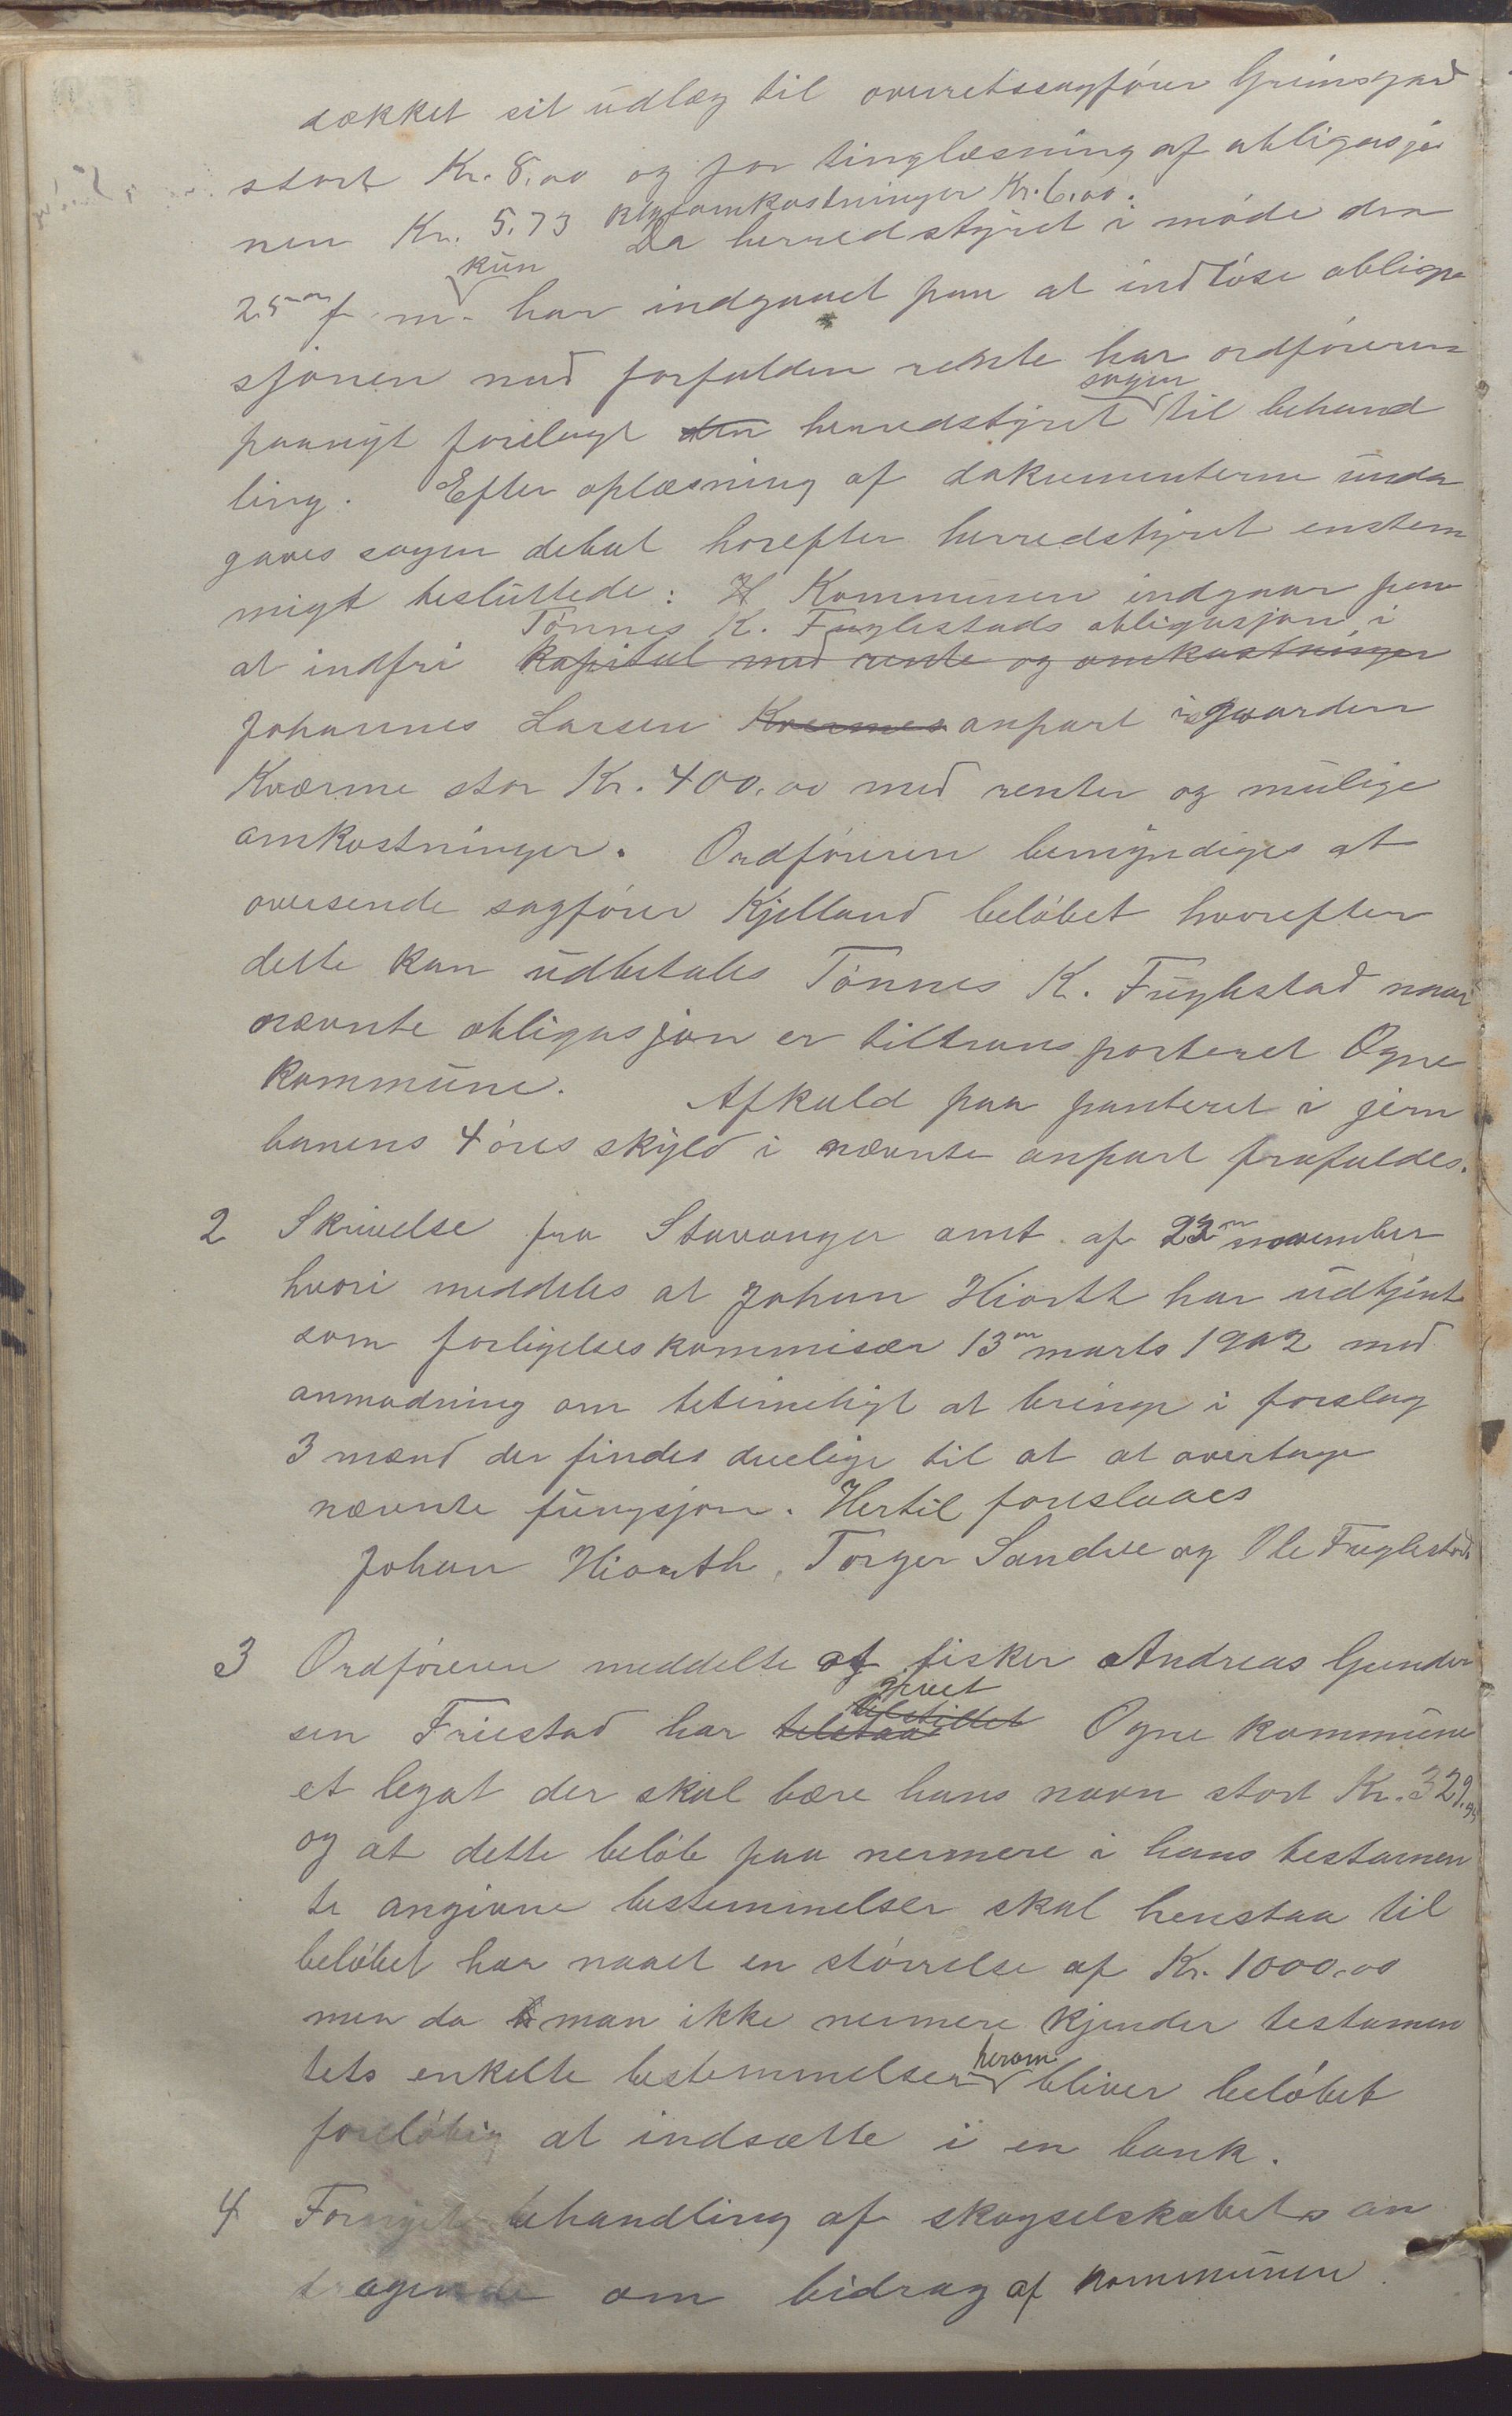 dækket sit udlæg til overretssagfører Grimsgard
stort Kr. 8,00 og for tinglæsning af obligasjo
nen Kr. 5.73 omkostninger Kr. 6,00. Da herredstyret i møde den
25 f. m. kun har indgaaet paa at indløse obliga
sjonen med forfalden rente har ordføreren
paanyt forelagt den herredstyret sagen til behand
ling. Efter oplæsning af dokumenterne unda
gaves sagen debat horefter herredstyret enstem
migt besluttede: Kommunen indgaar paa
Tønnes K. Fuglestads obligasjon i
at indfri kapital med rente og omkostninger
Johannes Larsen Kvermes anpart i gaarden
Kværme stor Kr. 400,00 med renter og mulige
omkostninger. Ordføreren bemyndiges at
oversende sagfører Kjelland beløbet hvorefter
dette kan udbetales Tønnes K. Fuglestad naar
nævnte obligasjon er tiltransporteret Ogne
kommune. Afkald paa panteret i jern
banens 4 øres skyld i nævnte anpart frafaldes.
2 Skrivelse fra Stavanger amt af 23 november
hvori meddeles at Johan Hiorth har udtjent
som forligelseskommisær 13 marts 1902 med
anmodning om betimeligt at bringe i forslag
3 mænd der findes duelige til at at overtage
nævnte fungsjon. Hertil foreslaaes
Johan Hiorth, Torger Sandve og Ole Fuglestad
3 Ordføreren meddelte at fisker Andreas Gunder
givet
tilstillet
sen Friestad har tilstaa Ogne kommune
et legat der skal bære hans navn stort Kr. 329,
og at dette beløb paa nermere i hans testamen
te angivne bestemmelser skal henstaa til
beløbet har naaet en størrelse af Kr. 1000,00
men da man ikke nermere kjender testamen
tets enkelte bestemmelser herom bliver beløbet
foreløbig at indsætte i en bank.
4 Fornyet behandling af skogselskabets an
dragende om bidrag af kommunen